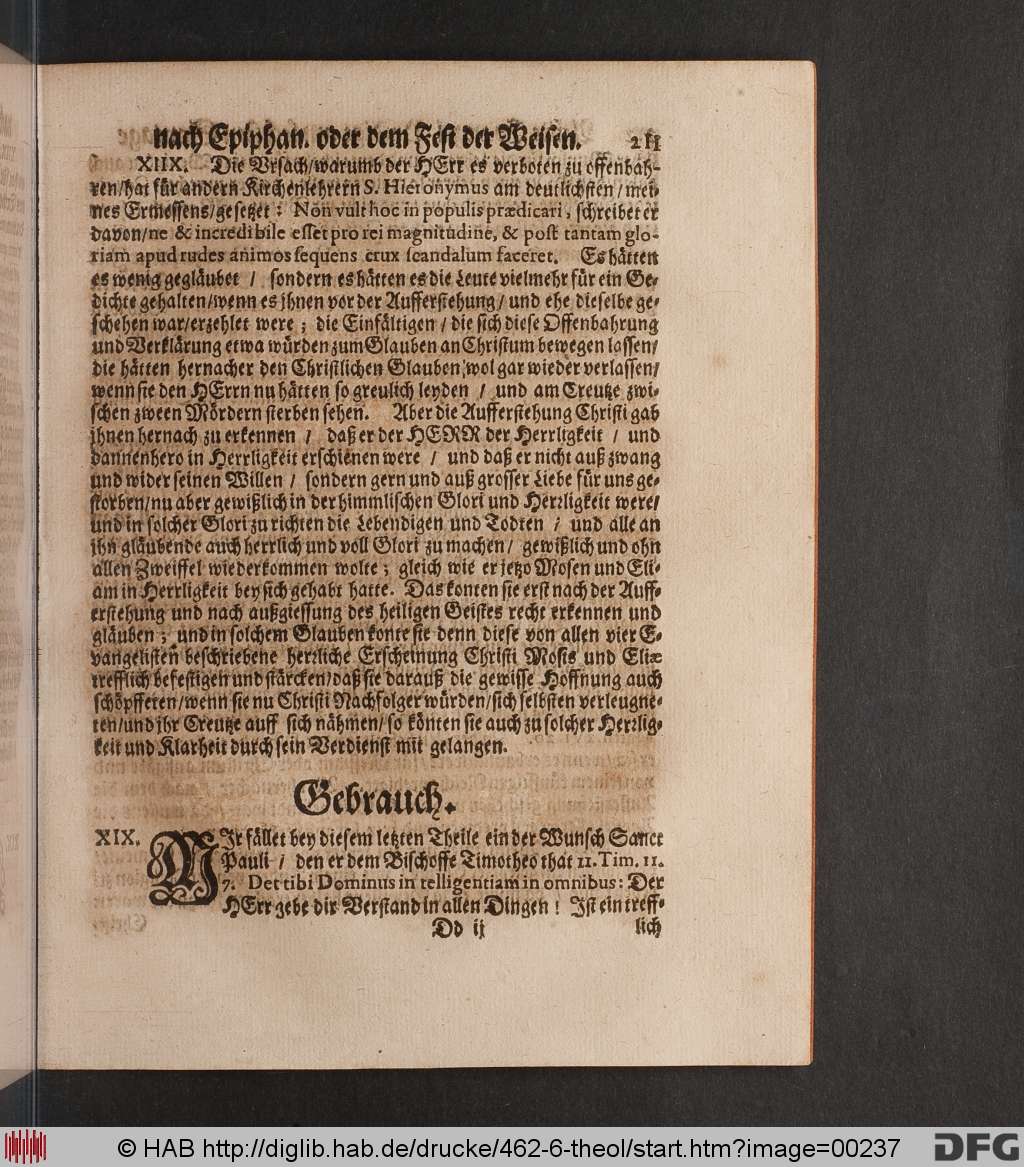 nach Epiphan. oder dem Fest der Weisen. 211
XIIX. Die Vrsach/warumb der HErr es verboten zu offenbah-
ren/hat für andern Kirchenlehrern S. Hieronymus am deutlichsten/mei-
nes Ermessens/gesetzet: Non vult hoc in populis prædicari, schreibet er
davon/ne & incredibile esset pro rei magnitudine, & post tantam glo-
riam apud rudes animos sequens crux scandalum faceret. Es hätten
es wenig gegläubet / sondern es hätten es die Leute vielmehr für ein Ge-
dichte gehalten/wenn es jhnen vor der Aufferstehung/und ehe dieselbe ge-
schehen war/erzehlet were; die Einfältigen/die sich diese Offenbahrung
und Verklärung etwa würden zum Glauben an Christum bewegen lassen/
die hätten hernacher den Christlichen Glauben wol gar wieder verlassen/
wenn sie den HErrn nu hätten so greulich leyden / und am Creutze zwi-
schen zween Mördern sterben sehen. Aber die Aufferstehung Christi gab
jhnen hernach zu erkennen / daß er der HERR der Herrligkeit / und
dannenhero in Herrligkeit erschienen were / und daß er nicht auß zwang
und wider seinen Willen / sondern gern und auß grosser Liebe für uns ge-
storben/nu aber gewißlich in der himmlischen Glori und Herrligkeit were/
und in solcher Glori zu richten die Lebendigen und Todten / und alle an
ihn gläubende auch herrlich und voll Glori zu machen/ gewißlich und ohn
allen Zweiffel wiederkommen wolte; gleich wie er jetzo Mosen und Eli-
am in Herrligkeit bey sich gehabt hatte. Das konten sie erst nach der Auff-
erstehung und nach außgiessung des heiligen Geistes recht erkennen und
gläuben; und in solchem Glauben konte sie denn diese von allen vier E-
vangelisten beschriebene herrliche Erscheinung Christi Mosis und Eliæ
trefflich befestigen und stärcken/daß sie darauß die gewisse Hoffnung auch
schöpfferen/wenn sie nu Christi Nachfolger würden/sich selbsten verleugne-
ten/und jhr Creutze auff sich nähmen/so könten sie auch zu solcher Herrlig-
keit und Klarheit durch sein Verdienst mit gelangen.
Gebrauch.
XIX. MIr fället bey diesem letzten Theile ein der Wunsch Sanct
Pauli / den er dem Bischoffe Timotheo that 11.Tim. 11.
7. Det tibi Dominus in telligentiam in omnibus: Der
HErr gebe dir Verstand in allen Dingen! Ist ein treff-
Dd ij lich
© HAB http://diglib.hab.de/drucke/462-6-theol/start.htm?image=00237
DFG